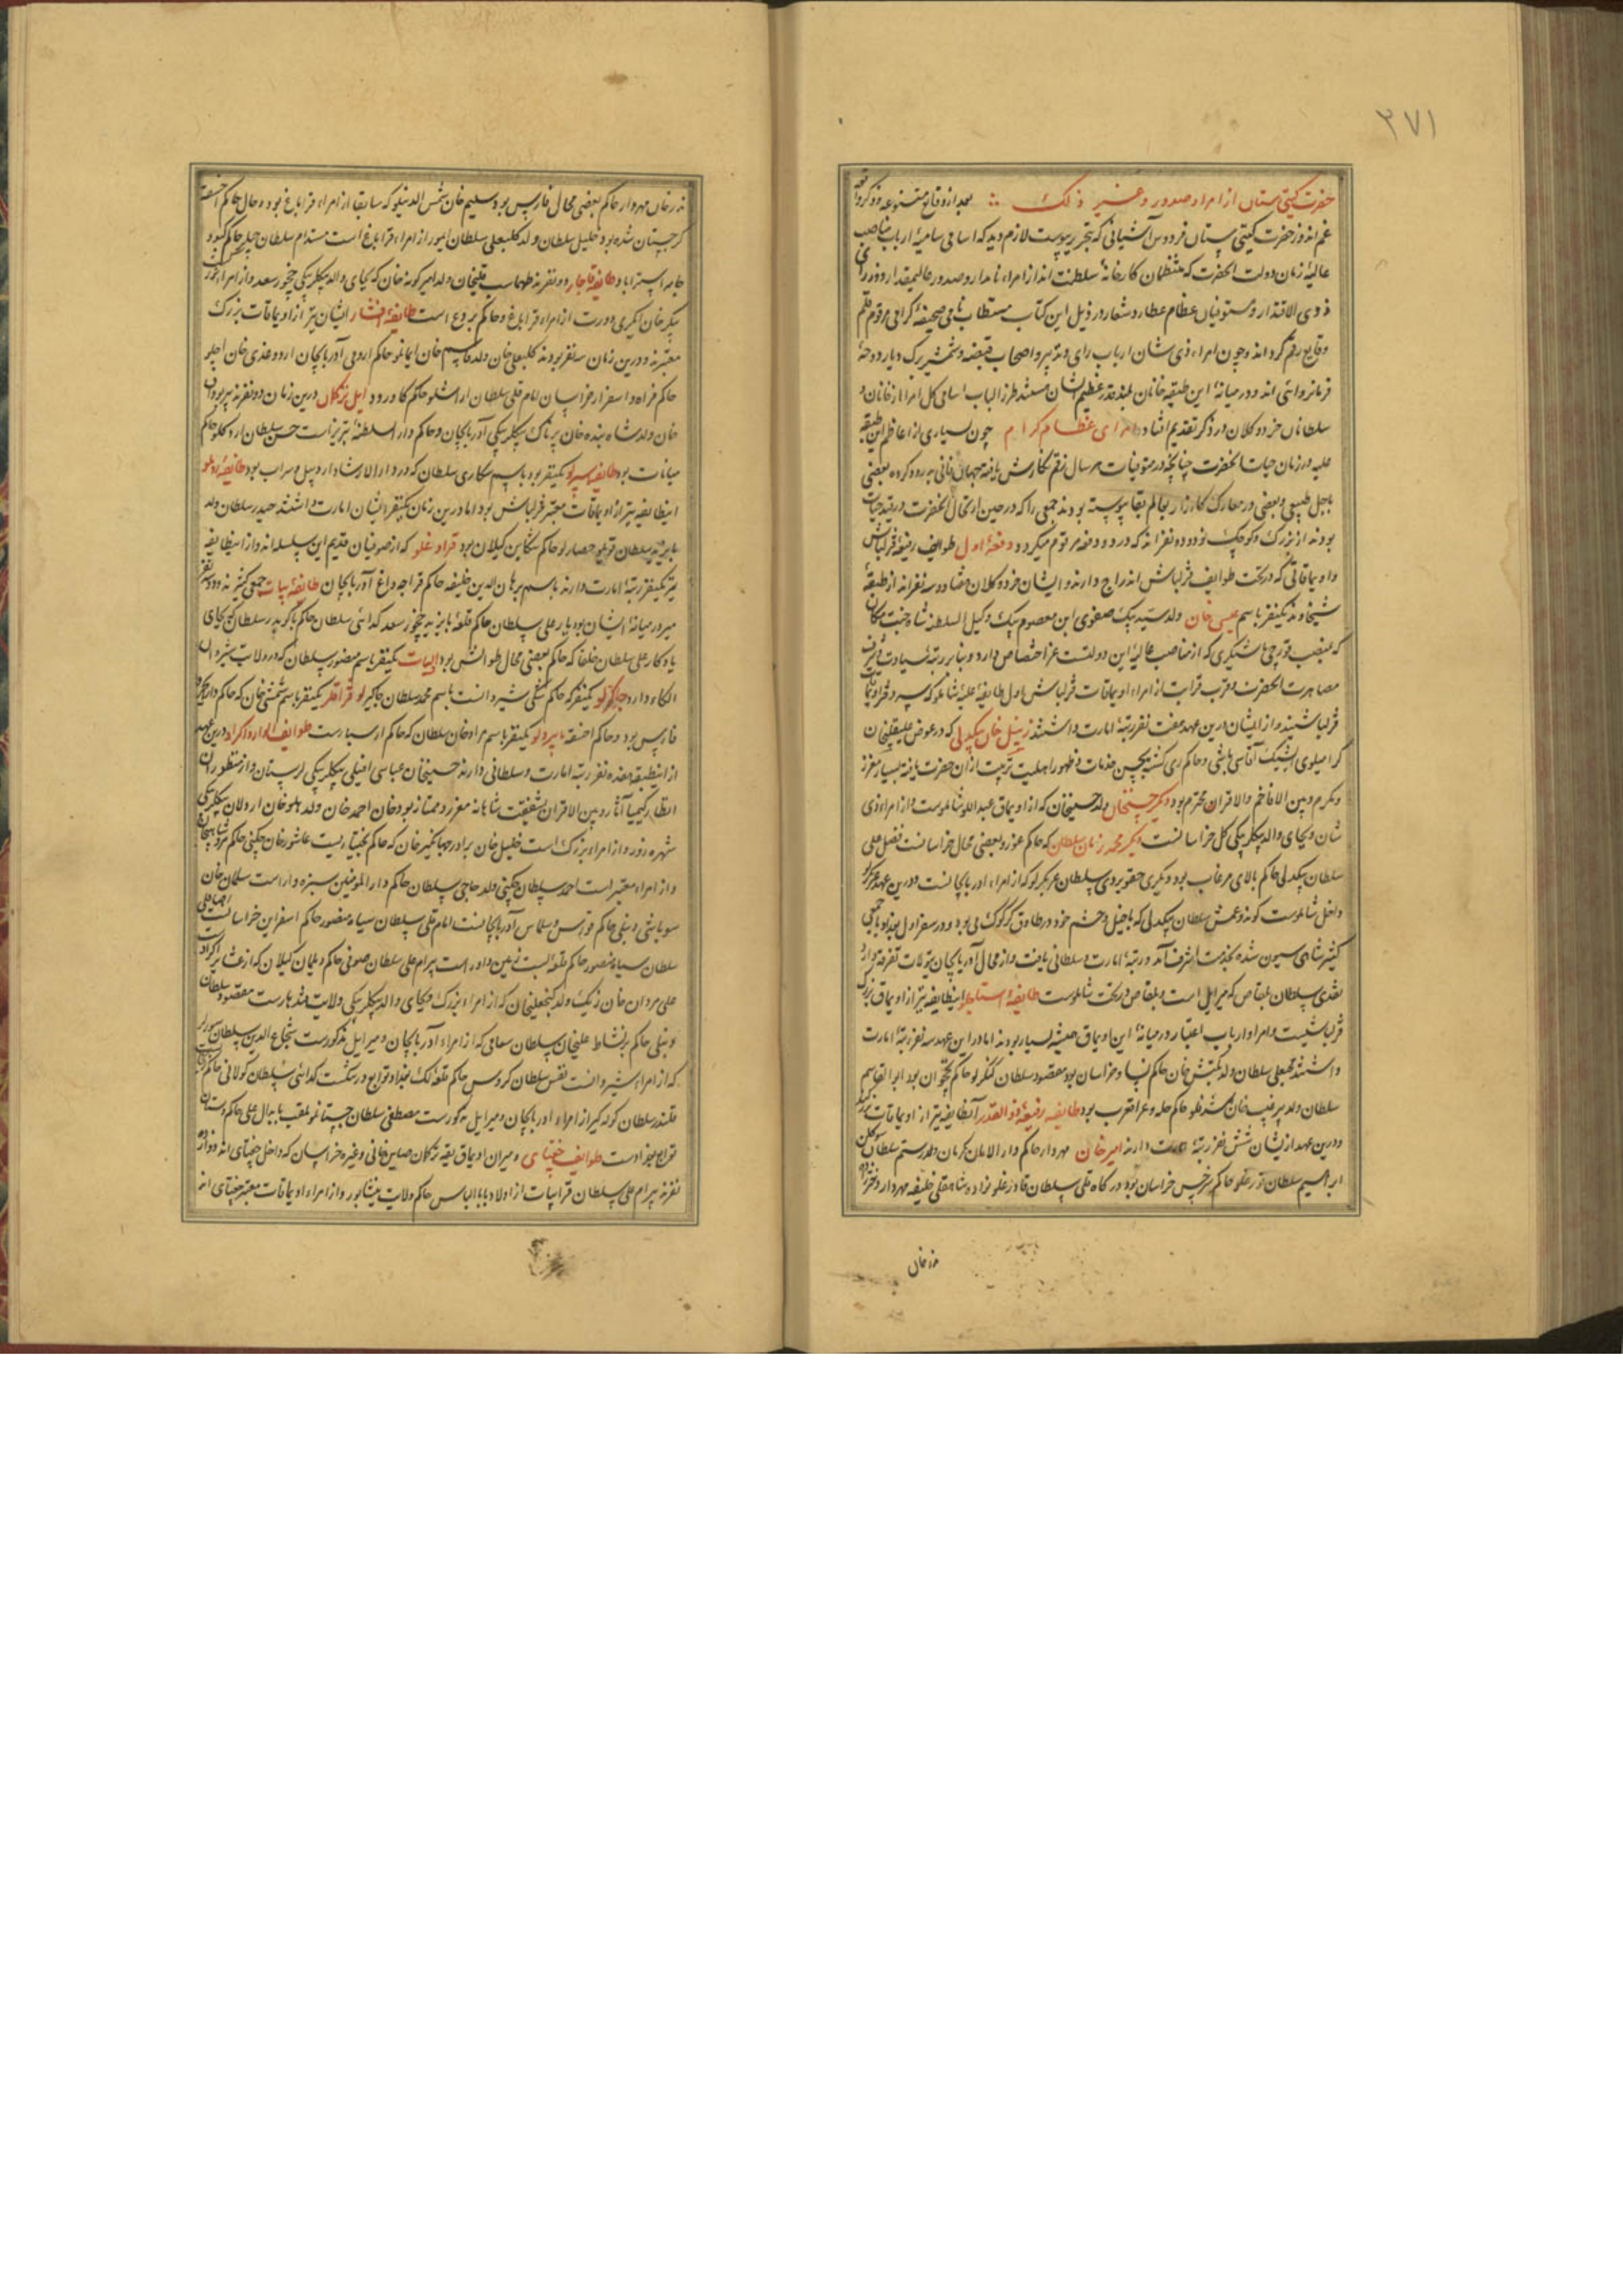 ۲۷۱
حضرت گیتی ستان از امرا و صدور و غیر ذلک بعد از وقایع متنوعه و ذکر
غم اندوز حضرت گیتی ستان فردوس آشیانی که بتحریر پیوست لازم دید که اسامی سامیهٔ ارباب مناصب
عالیهٔ زمان دولت آنحضرت که منتظمان کارخانهٔ سلطنت اند از امراء نامدار و صدور عالیمقدار و وزرای
ذوی الاقتدار و مستوفیان عظام عطارد شعار در ذیل این کتاب مستطاب نامی صحیفهٔ گرامی مرقوم قلم
وقایع رقم گرداند و چون امراء ذی شان ارباب رای و تدبیر و اصحاب قبضه و شمشیر
فرمانروائی اند و در میانهٔ این طبقه خانان بلند قدر عظیم الشان اسامی کل امرا از خانان و
سلطانان خرد و کلان در ذکر تقدیم افتاد امرای عظام کرام چون بسیاری از اعاظم این طبقه
علیه در زمان حیات آنحضرت چنانچه در متوفیات هر سال رقم نگارش یافته جهان فانی بدرود کرده بعضی
باجل طبیعی و بعضی در معارک کارزار بعالم بقا پیوسته بودند جمعی را که در حین ارتحال آنحضرت در قید حیات
بودند از بزرگ و کوچک نود و ده نفر اند که در دو دفعه مرقوم میگردد دفعهٔ اول طوایف رفیعهٔ قزلباش
و اویماقاتی که در تحت طوایف قزلباش اندراج دارند و ایشان خرد و کلان هفتاد و سه نفر اند از طبقهٔ
شیخاوند یکنفر باسم عیسی خان ولد سید بیک صفوی ابن معصوم بیک وکیل السلطنه شاه جنت مکان
که بمنصب قورچی باشیگری که از مناصب عالیهٔ این دولتست عز اختصاص دارد و بنابر رتبهٔ سیادت و شرف
مصاهرت آنحضرت و قرب قرابت از امراء اویماقات قزلباش اول طایفهٔ علیهٔ شاملو که سر دفتر اویماقات
قزلباشیند و از ایشان درین عهد هفت نفر رتبهٔ امارت داشتند زینل خان بیکدلی که در عوض علیقلیخان
کرامیلوی ایشیک آقاسی باشی و حاکم ری گشته بحسن خدمات و ظهور اهلیت تربیت از آن حضرت یافته بسیار معزز
و مکرم و بین الاماثل و الاقران محترم بود دیگر حسنخان ولد حسینخان که از اویماق عبداللوی شاملوست و از امراء ذی
شان و بجای والد بیگلربیگی کل خراسانست دیگر محمد زمان سلطان که حاکم غور و بعضی محال خراسانست فضل علی
سلطان بیکدلی حاکم بالای مرغاب بود و دیگری حقویردی سلطان عربگیرلو که از امراء آذربایجانست و درین عهد
داخل شاملوست کوندوغمش سلطان بیکدلی که با خیل و حشم خود در طاوق کرکوک می بود و در سفر اول بغداد با جمعی
کثیر شاهی سیون شده بخدمت اشرف آمد و رتبهٔ امارت و سلطانی یافت و از محال آذربایجان
نقدی سلطان بلقاص که میر ایل است و بلقاص در تحت شاملوست طایفهٔ استاجلو اینطایفه نیز از اویماق بزرگ
قزلباشیست و امرا و ارباب اعتبار در میانهٔ این اویماق همیشه بسیار بودند اما در این عهد سه نفر رتبهٔ امارت
داشتند محبعلی سلطان ولد بکتش خان حاکم نسا و خراسان بود مقصود سلطان کنگرلو حاکم نخجوان بود ابو القاسم
سلطان ولد پیرغیب خان حاکم حله و عراق عرب بود طایفه رفیعهٔ ذو القدر آنطایفه نیز از اویماقات بزرگند
و درین عهد از ایشان شش نفر رتبهٔ امارت دارند امیر خان مهردار حاکم دار الامان کرمان رستم سلطان
ابراهیم سلطان حاکم سرخس خراسان بود درگاه قلی سلطان شاهقلی خلیفه مهردار
ندر خان
ندر خان مهردار حاکم بعضی محال فارس بود سلیم خان شمس الدینلو که سابقا از امراء قراباغ بوده و حال حاکم اخسقه
گرجستان شده بود خلیل سلطان ولد کلبعلی سلطان از امراء قراباغ است مستدام سلطان حاکم کبود
جامه استراباد طایفهٔ قاجار دو نفرند طهماسب قلیخان ولد امیر گونه خان که بجای والد بیگلربیگی چخور سعد و از امراء
بیکر خان ایکرمی دورت از امراء قراباغ و حاکم بردع است طایفهٔ افشار ایشان نیز از اویماقات بزرگ
معتبرند و درین زمان سه نفر بودند کلبعلی خان ولد قاسم خان ایمانلو حاکم ارومی آذربایجان اردوغدی خان
حاکم فراه و اسفزار خراسان امام قلی سلطان ارشلو حاکم کاورود ایل ترکمان درین زمان دو نفرند
خان ولد شاه بنده خان پرناک بیگلربیگی آذربایجان و حاکم دار السلطنهٔ تبریزست حسن سلطان حاکم
میانات بود طایفهٔ یکنفر بود باسم شکاری سلطان که در دار الارشاد اردبیل و سراب بود طایفهٔ روملو
اینطایفه نیز از اویماقات معتبر قزلباش بود اما درین زمان یکنفر ایشان امارت داشتند حیدر سلطان ولد
بایزید سلطان قویله حصارلو حاکم تنکابن گیلان بود قرادغلو که از صوفیان قدیم این سلسله اند و از اینطایفه
نیز یکنفر رتبهٔ امارت دارند باسم برهان الدین خلیفه حاکم قراجه داغ آذربایجان طایفهٔ بیات جمعی کثیرند و دو نفر
میر در میانهٔ ایشان بود پار علی سلطان حاکم قلعهٔ بایزید چخور سعد کدائی سلطان حاکم باکو پدر سلطان که بجای
یادگار علی سلطان خلفا که حاکم بعضی محال طوالش بود البیات یکنفر باسم منصور سلطان که در ولایت شیروان
الکاء دارد جاگیرلو یکنفر که حاکم شکی شیروانست باسم محمد سلطان جاگیرلو قراقلر یکنفر باسم شمسی خان که حاکم
فارس بود و حاکم اخسقه بایبردلو یکنفر باسم مراد خان سلطان که حاکم ارسبارست طوایف الوار و اکراد درین عهد
از اینطبقه هفده نفر رتبه امارت و سلطانی دارند حسینخان عباسی افیلی بیگلربیگی لرستان و از منظوران
انظار کیمیا آثار و بین الاقران بشفقت شاهانه معزز و ممتاز بود خان احمد خان ولد هلو خان اردلان بیگلربیگی
شهره زور و از امراء بزرگ است خلیل خان برادر جهانگیر خان که حاکم بختیاریست عاشور خان چگنی حاکم مرو شاهیجان
و از امراء معتبر است احمد سلطان چگنی ولد حاجی سلطان حاکم دار المومنین سبزه وارست سلمان خان
سوباشی دنبلی حاکم خوی و سلماس آذربایجانست امام قلی سلطان سیاه منصور حاکم اسفراین خراسانست
سلطان سیاه منصور حاکم قلعه بست زمین داورست بیرام علی سلطان صوفی حاکم دیلمان گیلان که از عشایر اکرادست
علی مردان خان زیک ولد گنجعلیخان که از امراء بزرگ و بجای والد بیگلربیگی ولایت قندهارست مقصود سلطان
دنبلی حاکم برنشاط علیخان سلطان سعامی که از امراء آذربایجان و میر ایل مذکورست شجاع الدین سلطان
که از امراء شیروانست نفس سلطان کروس حاکم قلعه لک بغداد و توابع کدائی سلطان کولانی حاکم
قلندر سلطان کوله گیر از امراء آذربایجان و میر ایل مذکورست مصطفی سلطان ملقب بابدال علی حاکم
توابع بغدادست طوایف جغتای و میران اویماق بقیه ترکمان صاین خانی و غیره خراسان که داخل جغتای اند دوازده
نفرند بیرام علی سلطان قرابیات از اولاد بابا الیاس حاکم ولایت نیشابور و از امراء اویماقات معتبر جغتای اند